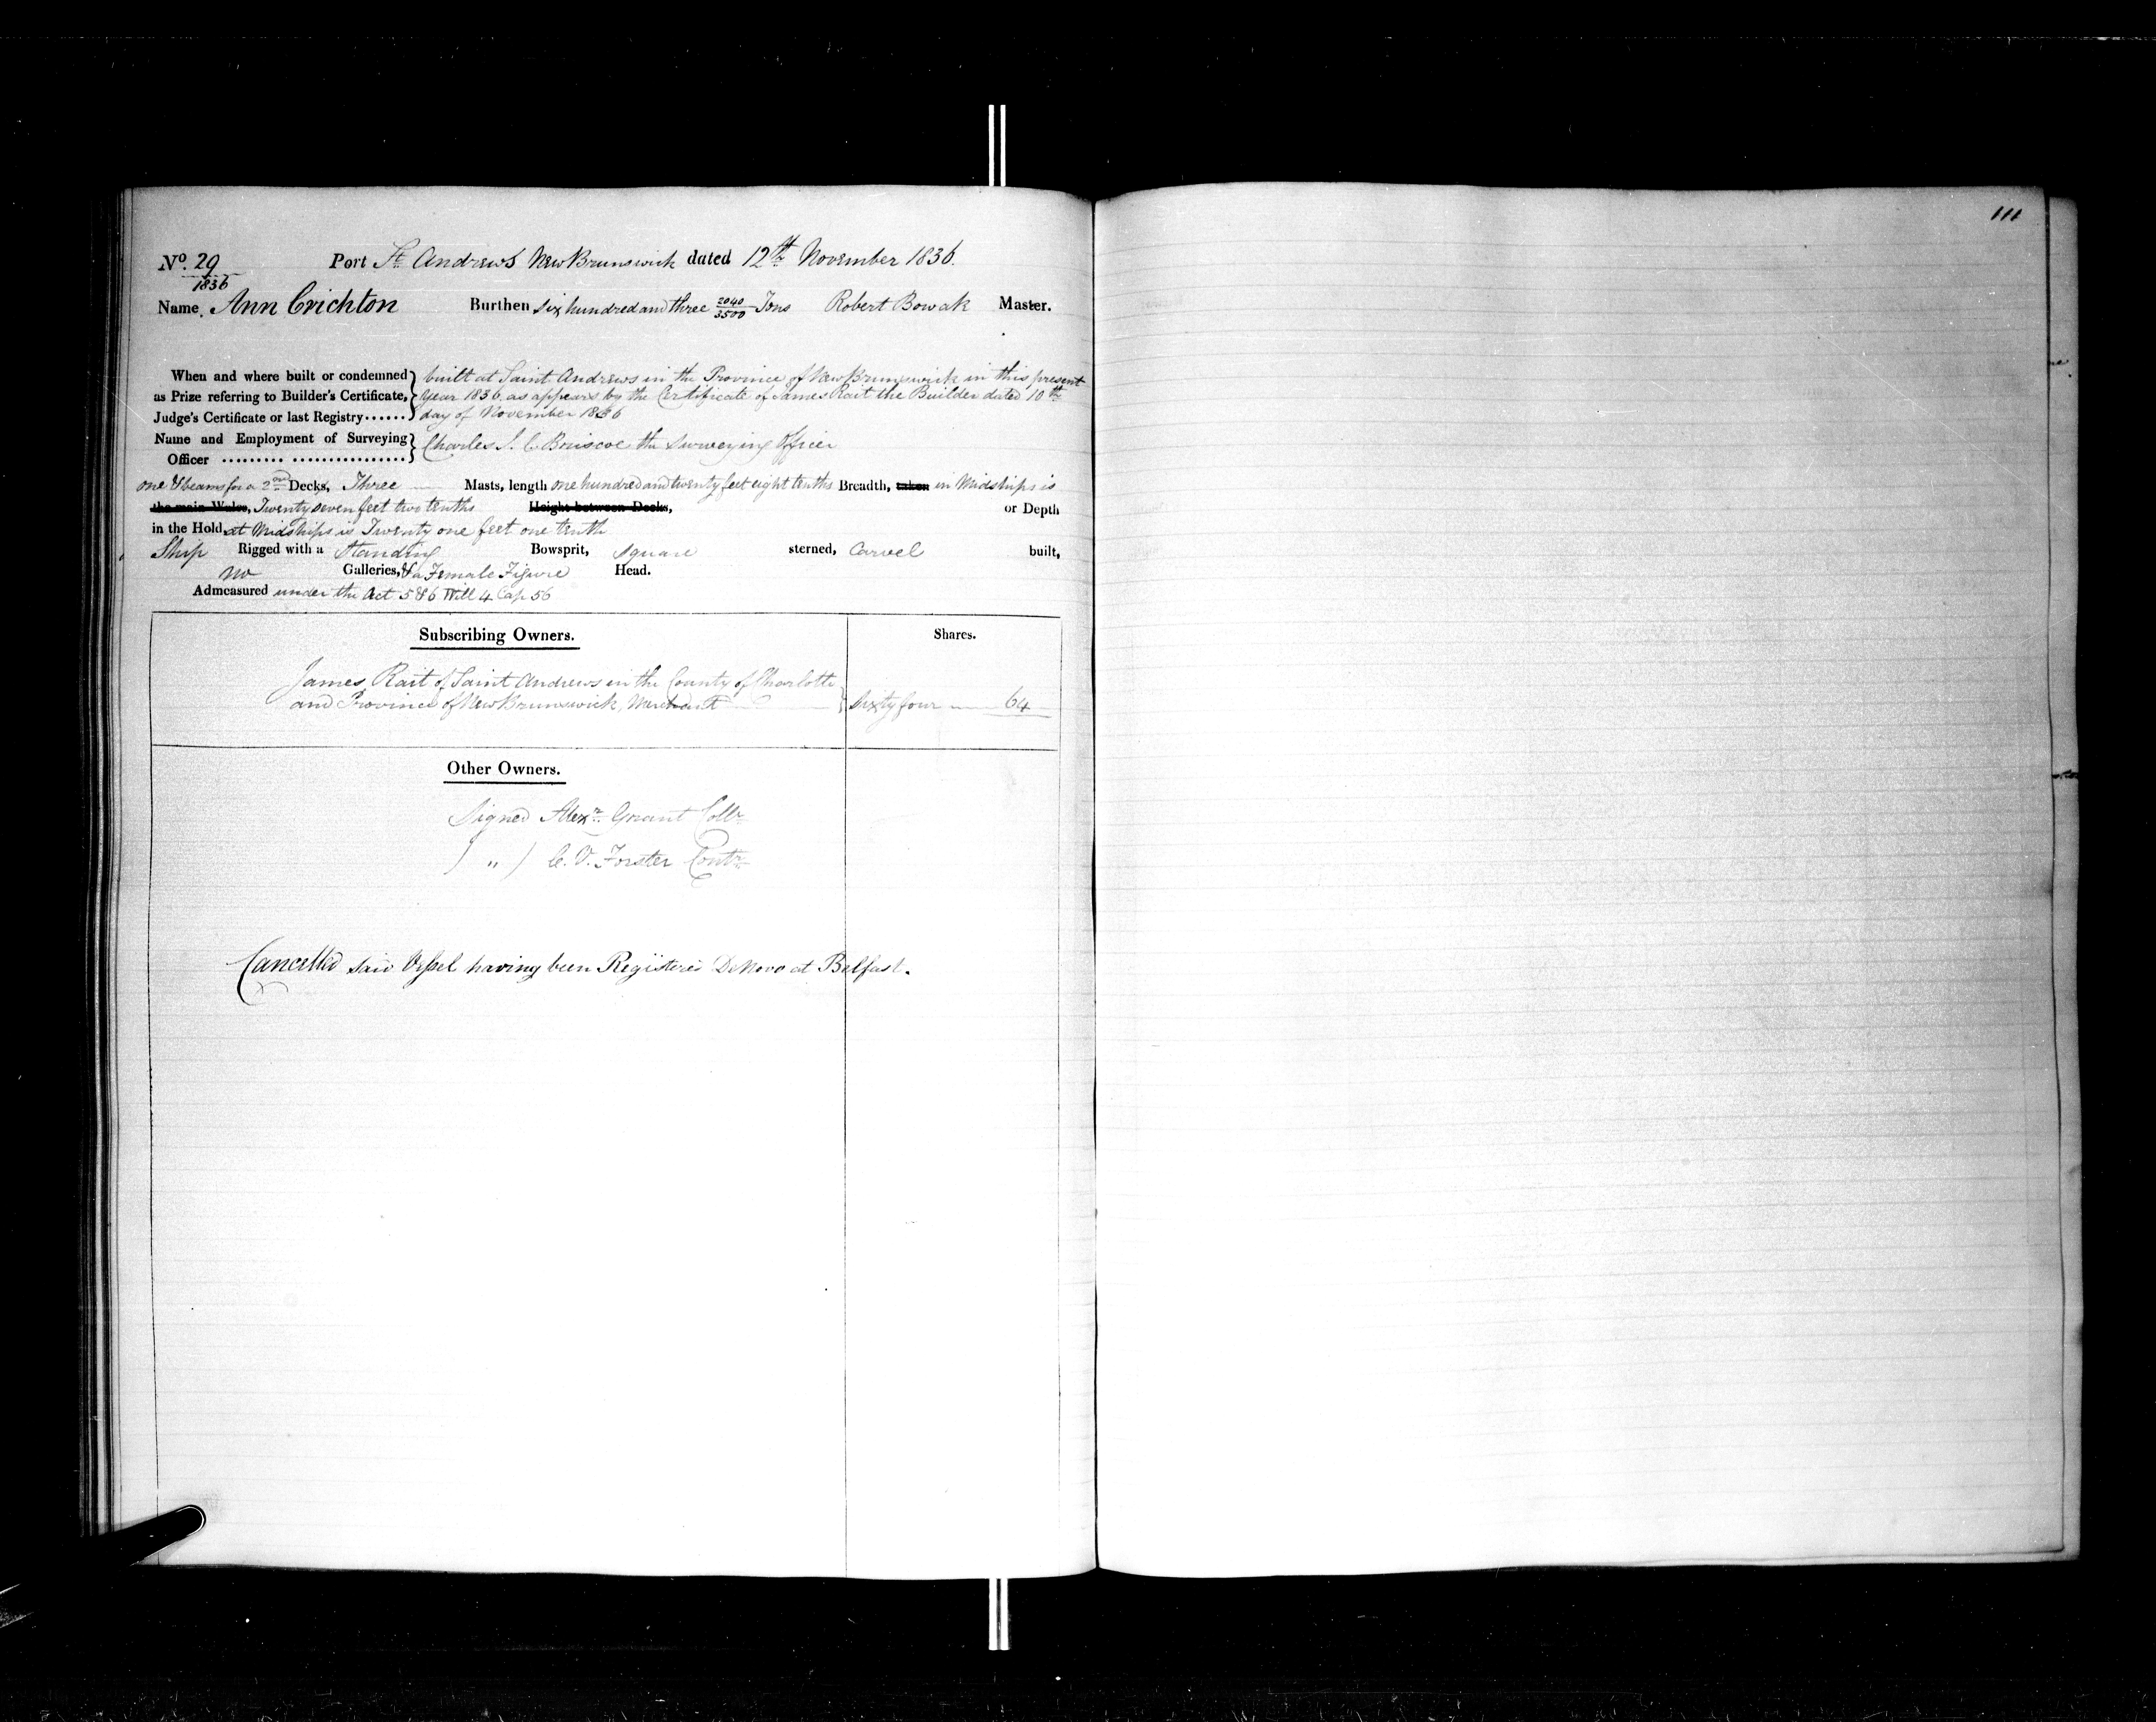 111
No. 29 Port St. Andrews New Brunswick dated 12th November 1836.
1836
Name, Ann Crichton Burthen six hundred and three 2040/3500 Tons Robert Bowak Master.
When and where built or condemned } built at Saint Andrews in the Province of New Brunswick in this present
as Prize referring to Builder's Certificate, } Year 1836 as appears by the Certificate of James Rait the Builder dated 10th
Judge's Certificate or last Registry...... } day of November 1836
Name and Employment of Surveying } Charles J. C. Briscoe the Surveying Officer
Officer ......... ................ }
one & beams for a 2nd Decks, Three Masts, length one hundred and twenty feet eight tenths Breadth, taken in Midships is
the main Wales, Twenty seven feet two tenths Height between Decks, or Depth
in the Hold at Midships is Twenty one feet one tenth
Ship Rigged with a Standing Bowsprit, square sterned, Carvel built,
no Galleries, & a Female Figure Head.
Admeasured under the Act 5 & 6 Will 4 Cap 56
Subscribing Owners. Shares.
James Rait of Saint Andrews in the County of Charlotte }
and Province of New Brunswick, Merchant } Sixty four 64
Other Owners.
Signed Alexr. Grant Collr
) " ) C. D. Forster Contr
Cancelled said Vessel having been Registered De Novo at Belfast.